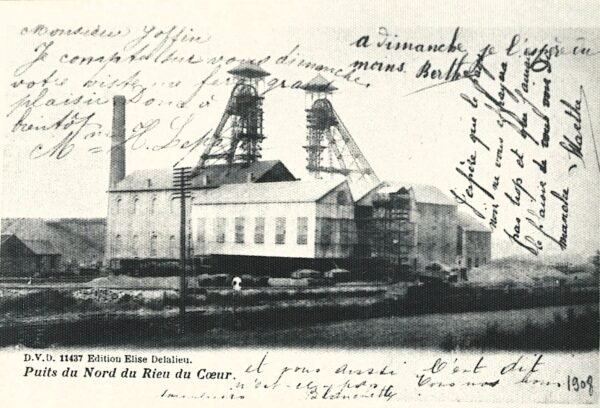 Monsieur Joffin
Je compte sur vous dimanche,
votre visite me fera grand
plaisir Donc à
bientôt
Mme H.
a dimanche, je l'espère du
moins. Berthe
J'espère que le
vous
pas trop et que j'aurai
le plaisir de vous voir Di
manche Marthe
D.V.D. 11437 Edition Elise Delalieu.
Puits du Nord du Rieu du Cœur.
et vous aussi
n'est-ce pas
Blanchette
C'est dit
Tous nos
1908